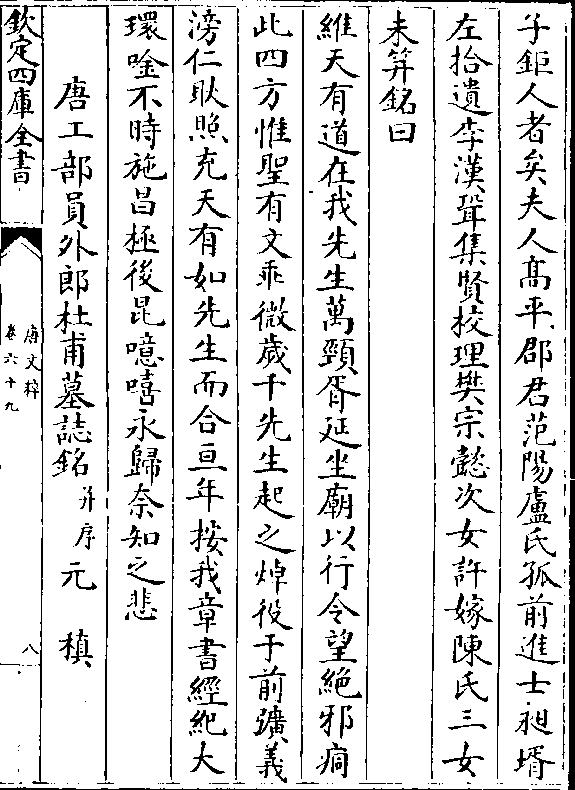 子鉅人者矣夫人髙平郡君范陽盧氏孤前進士昶壻
左拾遺李漢聟集賢校理樊宗懿次女許嫁陳氏三女
未笄銘曰
維天有道在我先生萬頸胥延坐廟以行令望絶邪痌
此四方惟聖有文乖微歲千先生起之焯役于前礦義
滂仁耿照充天有如先生而合亘年按我章書經紀大
環唫不時施昌極後昆噫嘻永歸奈知之悲
唐工部員外郎杜甫墓誌銘 并序 元 稹
欽定四庫全書
唐文粹
卷六十九
八